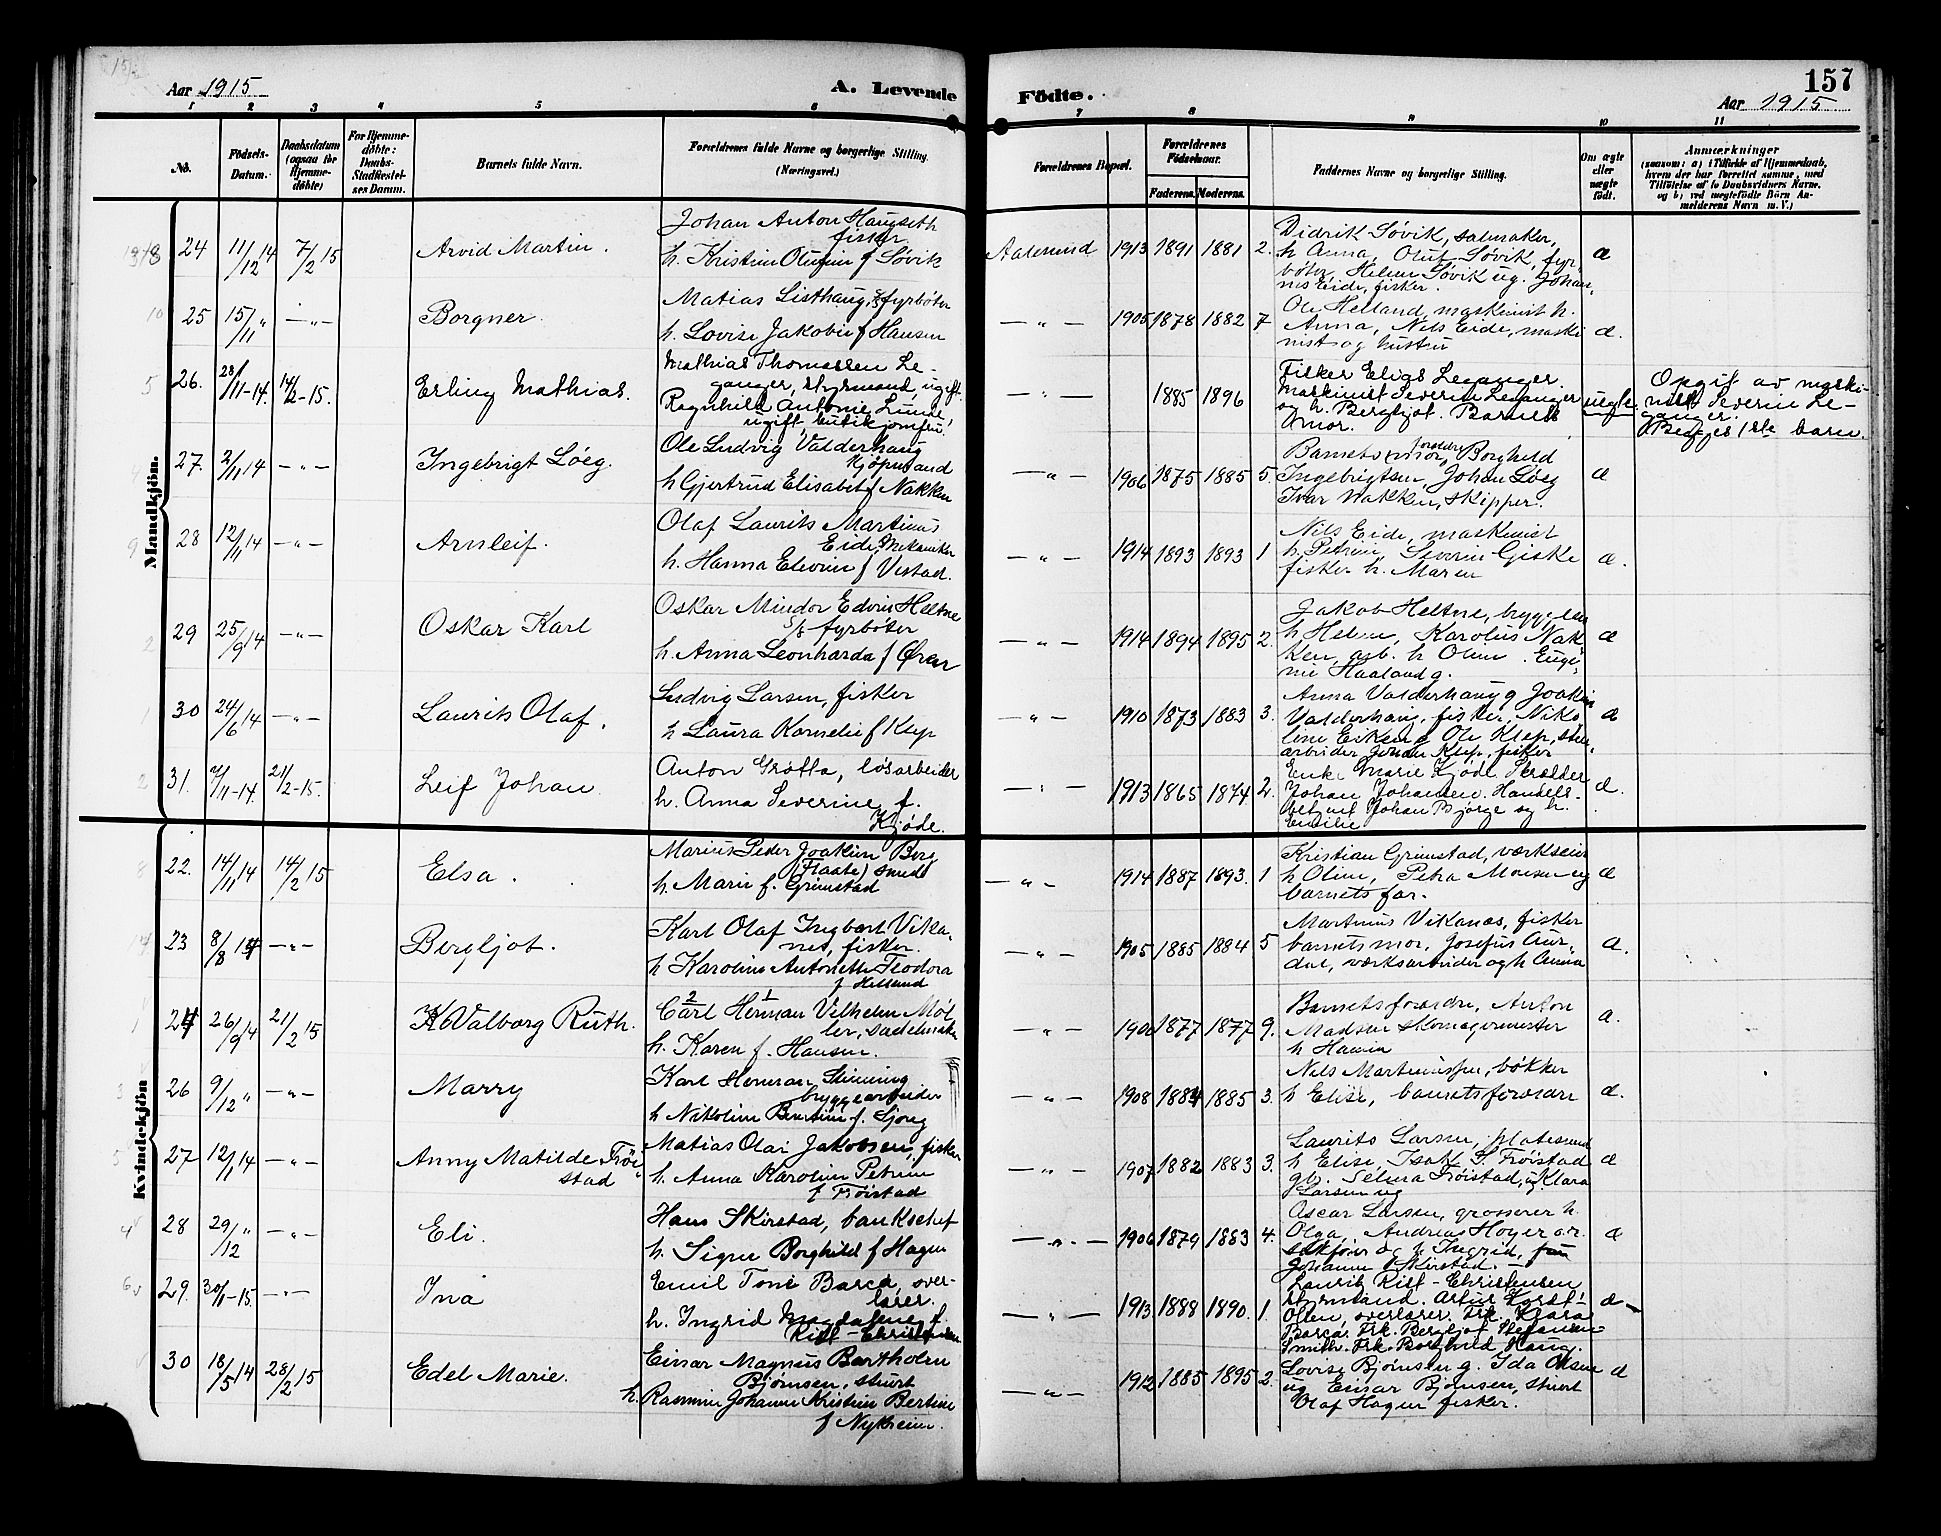 157
Aar 1915
A. Levende
Födte.
Aar 1915
1 2 3 4 5 6 7 8 9 10 11
No.
Födsels-
Datum.
Daabsdatum
(ogsaa for
Hjemme-
döbte)
For Hjemme-
döbte:
Daabs-
Stadfæstel-
ses Datum.
Barnets fulde Navn.
Forældrenes fulde Navne og borgerlige Stilling.
(Næringsvei.)
Forældrenes Bopæl.
Forældrenes
Födselsaar.
Faderens. Moderens.
Faddernes Navne og borgerlige Stilling.
Om ægte
eller
uægte
födt.
Anmærkninger
(saasom: a) i Tilfælde af Hjemmedaab,
hvem der har forrettet samme, med
Tilföielse af to Daabsvidners Navne,
og b) ved uægtefödte Börn An-
melderens Navn m. V.)
Mandkjön.
24 11/12 14 7/2 15 Arvid Martin.
Johan Anton Haugseth
fisker
h. Kristine Oline f Søvik
Aalesund 1913 1891 1881 2.
Didrik Søvik, salmaker,
h Anna, Oluf Søvik, fyr-
bøter, Helene Søvik ug. Johan-
nes Eide, fisker.
æ
25 15/11 " — " — Borgner.
Matias Listhaug, fyrbøter
h. Lovise Jakobie f Hansen
— " — 1905 1878 1882 7
Ole Helland, maskinist h.
Anna, Nils Eide, maski
nist og hustru
æ.
26. 28/11-14. 14/2-15. Erling Mathias.
Mathias Thomassen Le-
ganger, styrmand, ugift.
Ragnhild Antonie Lunde,
ugift, butikjomfru.
— " — 1885 1896
Fisker Elias Leganger.
Maskinist Severin Leganger
og h. Bergljot. Barnets
mor.
uegte
Opgit av maski-
nist Severin Le-
ganger.
Begges 1ste barn.
27. 2/11 14 — " — Ingebrigt Løeg.
Ole Ludvig Valderhaug
kjøpmand
h Gjertrud Elisabet f Nakken
— " — 1906 1875 1885 5.
Barnets forældre Borghild
Ingebrigtsen, Johan Løeg
Ivar Nakken, skipper.
æ
28 12/11 14 — " — Arnleif.
Olaf Laurits Martinus
Eide, Mekaniker
h. Hanna Elevine f Vestad.
— " — 1914 1893 1893 1
Nils Eide, maskinist
h. Petrine, Severin Giske
fisker h. Maren
æ.
29 25/9 14 — " — Oskar Karl
Oskar Mindor Edvin Heltne
fyrbøter
h. Anna Leonharda f Ørar
— " — 1914 1894 1895 2.
Jakob Heltne,
h Helene, Karolus Nak
ken, arb. h Oline. Euge-
nie Haaland g.
æ
30 24/6 14 — " — Laurits Olaf.
Ludvig Larsen, fisker
h Laura Kornelie f Klep
— " — 1910 1873 1883 3.
Anna Valderhaug g Joakim
Valderhaug, fisker, Niko-
line Eiken g Ole Klep,
arbeider Johan Klep, fisker
æ
31. 7/11-14. 21/2-15. Leif Johan.
Anton Grøtta, løsarbeider
h. Anna Severine f.
Kjøde.
— " — 1913 1865 1874 2.
Enke Marie Kjøde Skrædder
Johan Johansen. Handels-
betjent Johan Bjørge og h.
Emilie
æ.
Kvindekjön
22. 14/11 14 14/2 15 Elsa.
Marius Peder Joakim Berg
(Flaate) smed
h. Marie f. Grimstad
— " — 1914 1887 1893. 1
Kristian Grimstad, værkseier
h Oline, Petra Monsen ug
barnets far.
æ
23 8/8 14 — " — Bergljot.
Karl Olaf Ingbert Vika-
nes, fisker.
h Karoline Antonette Teodora
f Helland
— " — 1905 1885 1884 5
Martinus Vikanæs, fisker
barnets mor, Josefus Aur-
dal, værksarbeider og h Anna
æ.
24 26/9 14 21/2 15 Valborg Ruth.
Carl Herman Vilhelm Møl-
ler, sadelmaker
h. Karen f. Hansen.
— " — 1900 1877 1877 9.
Barnets forældre, Anton
Madsen skomagermester
h
æ.
26 9/12 " — " — Marry
Karl Herman Skinning
bryggearbeider
h Nikoline Berntine f. Sjong
— " — 1908 1884 1885 3.
Nils Martinussen, bøkker
h Elise, barnets forældre
æ.
27 12/1 14 — " — Anny Matilde Frøi-
stad
Matias Olai Jakobsen, fisker
h. Anna Karoline Petrine
f Frøistad
— " — 1907 1882 1883 3.
Laurits Larsen,
h Elise, Isak S. Frøistad
gb. Selma Frøistad, ug Klara
Larsen ug
æ
28 29/12 " — " — Eli.
Hans Skirstad, bankschef
h. Signe Borghild f Hagen
— " — 1906 1879 1883 4.
Oscar Larsen, grosserer h.
Olga, Andreas Høyer o.r.
sakfører og h Ingrid, frøken
Johanne Skirstad.
æ
29. 30/11-15. — " — Ina
Emil Toni Barca, over-
lærer.
h. Ingrid Magdalene f.
Rist-Christensen
— " — 1913 1888 1890. 1.
Laurits Rist-Christensen
styrmand. Artur Horst-
Olsen, overlærer. Frk. Klara
Barca. Frk. Bergljot Stefansen
Smith. Frk. Borghild Haug.
æ
30 18/5 14 28/2 15 Edel Marie.
Einar Magnus Bartholm
Bjørnsen, stuert
h. Rasmine Johanne Kristine Bertine
f Nykreim.
— " — 1912 1885 1895 2.
Lovise Bjørnsen g. Ida Olsen
ug Einar Bjørnsen, stuert
Olaf Hagen fisker.
æ